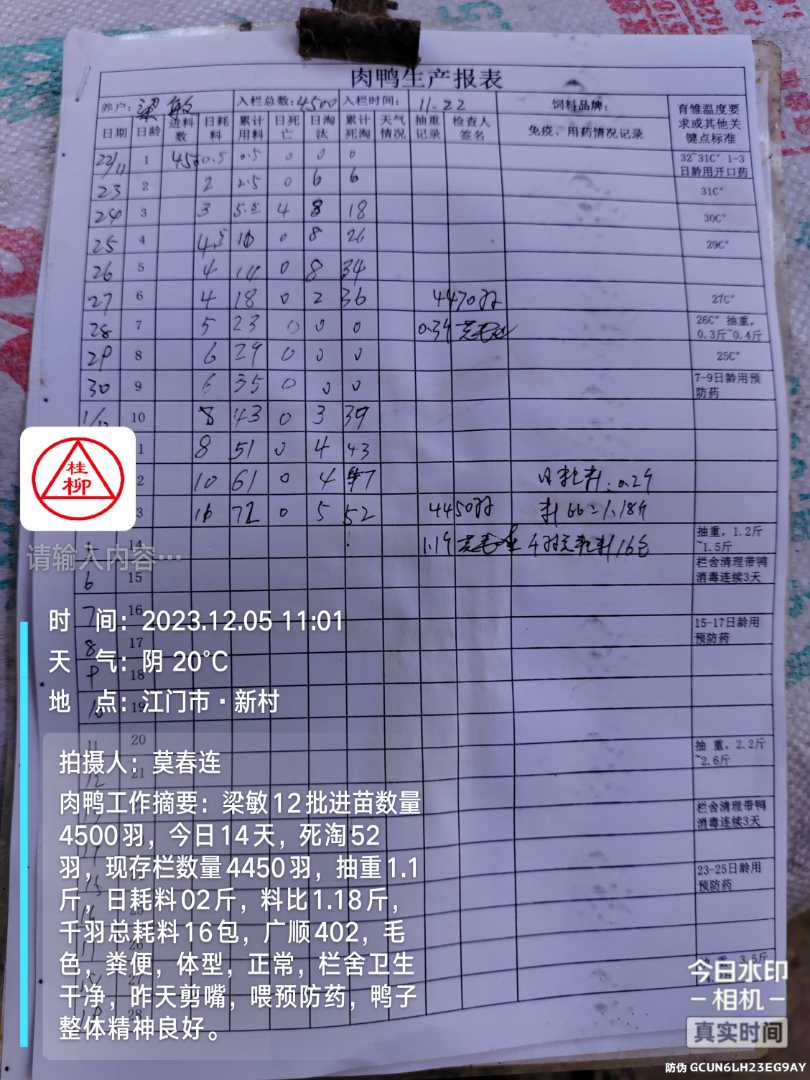 肉鸭生产报表
养户: 梁敏 入栏总数:4500 入栏时间: 11.22 饲料品牌:
日期 日龄 进料数 日耗料 累计用料 日死亡 日淘汰 累计死淘 天气情况 抽重记录 检查人签名 免疫、用药情况记录 育雏温度要求或其他关键点标准
22/11 1 0.5 0.5 0 0 0 32~31C° 1-3日龄用开口药
23 2 2 2.5 0 6 6 31C°
24 3 3 4 8 18 30C°
25 4 4.5 10 0 8 26 29C°
26 5 4 14 0 8 34
27 6 4 18 0 2 36 4470羽 27C°
28 7 5 23 0 0 0 26C° 抽重，0.3斤~0.4斤
29 8 6 29 0 0 0 25C°
30 9 6 35 0 0 0 7-9日龄用预防药
1/12 10 8 43 0 3 39
1 8 51 0 4 43
2 10 61 0 4 47 日耗料:0.2斤
3 72 0 5 52 4450羽 料比=1.18斤
14 1.1斤 千羽总耗料16包 抽重，1.2斤~1.5斤
6 15 栏舍清理带鸭消毒连续3天
7 16
8 17 15-17日龄用预防药
9 18
10 19
11 20
12 21 抽重，2.2斤~2.6斤
栏舍清理带鸭消毒连续3天
23-25日龄用预防药
桂柳
请输入内容…
时 间：2023.12.05 11:01
天 气：阴 20℃
地 点：江门市·新村
拍摄人：莫春连
肉鸭工作摘要：梁敏12批进苗数量
4500羽，今日14天，死淘52
羽，现存栏数量4450羽，抽重1.1
斤，日耗料02斤，料比1.18斤，
千羽总耗料16包，广顺402，毛
色，粪便，体型，正常，栏舍卫生
干净，昨天剪嘴，喂预防药，鸭子
整体精神良好。
今日水印
-相机-
真实时间
防伪 GCUN6LH23EG9AY